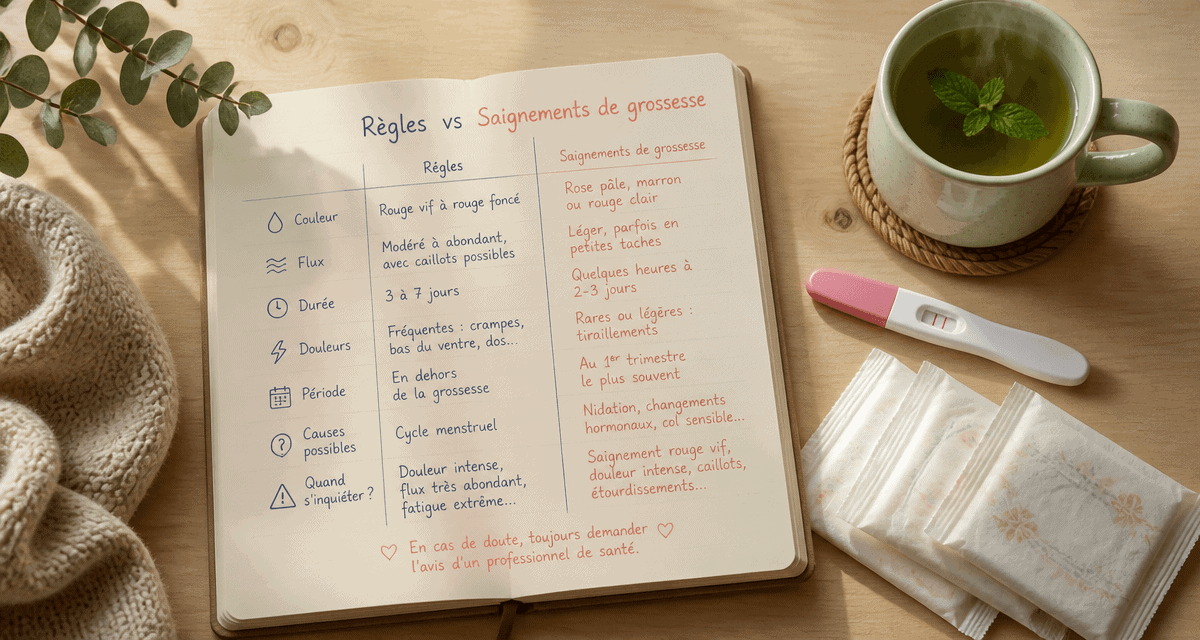 Règles vs Saignements de grossesse
Régles
Saignements de grossesse
Couleur
Rouge vif à rouge foncé
Rose pâle, marron
ou rouge clair
Flux
Modéré à abondant,
avec caillots possibles
Léger, parfois en
petites taches
Durée
3 à 7 jours
Quelques heures à
2-3 jours
Douleurs
Fréquentes : crampes,
bas du ventre, dos...
Rares ou légères :
tiraillements
Période
En dehors
de la grossesse
Au 1er trimestre
le plus souvent
Causes
possibles
Cycle menstruel
Nidation, changements
hormonaux, col sensible...
Quand
s'inquiéter ?
Douleur intense,
flux très abondant,
fatigue extrême...
Saignement rouge vif,
douleur intense, caillots,
étourdissements...
En cas de doute, toujours demander
l'avis d'un professionnel de santé.